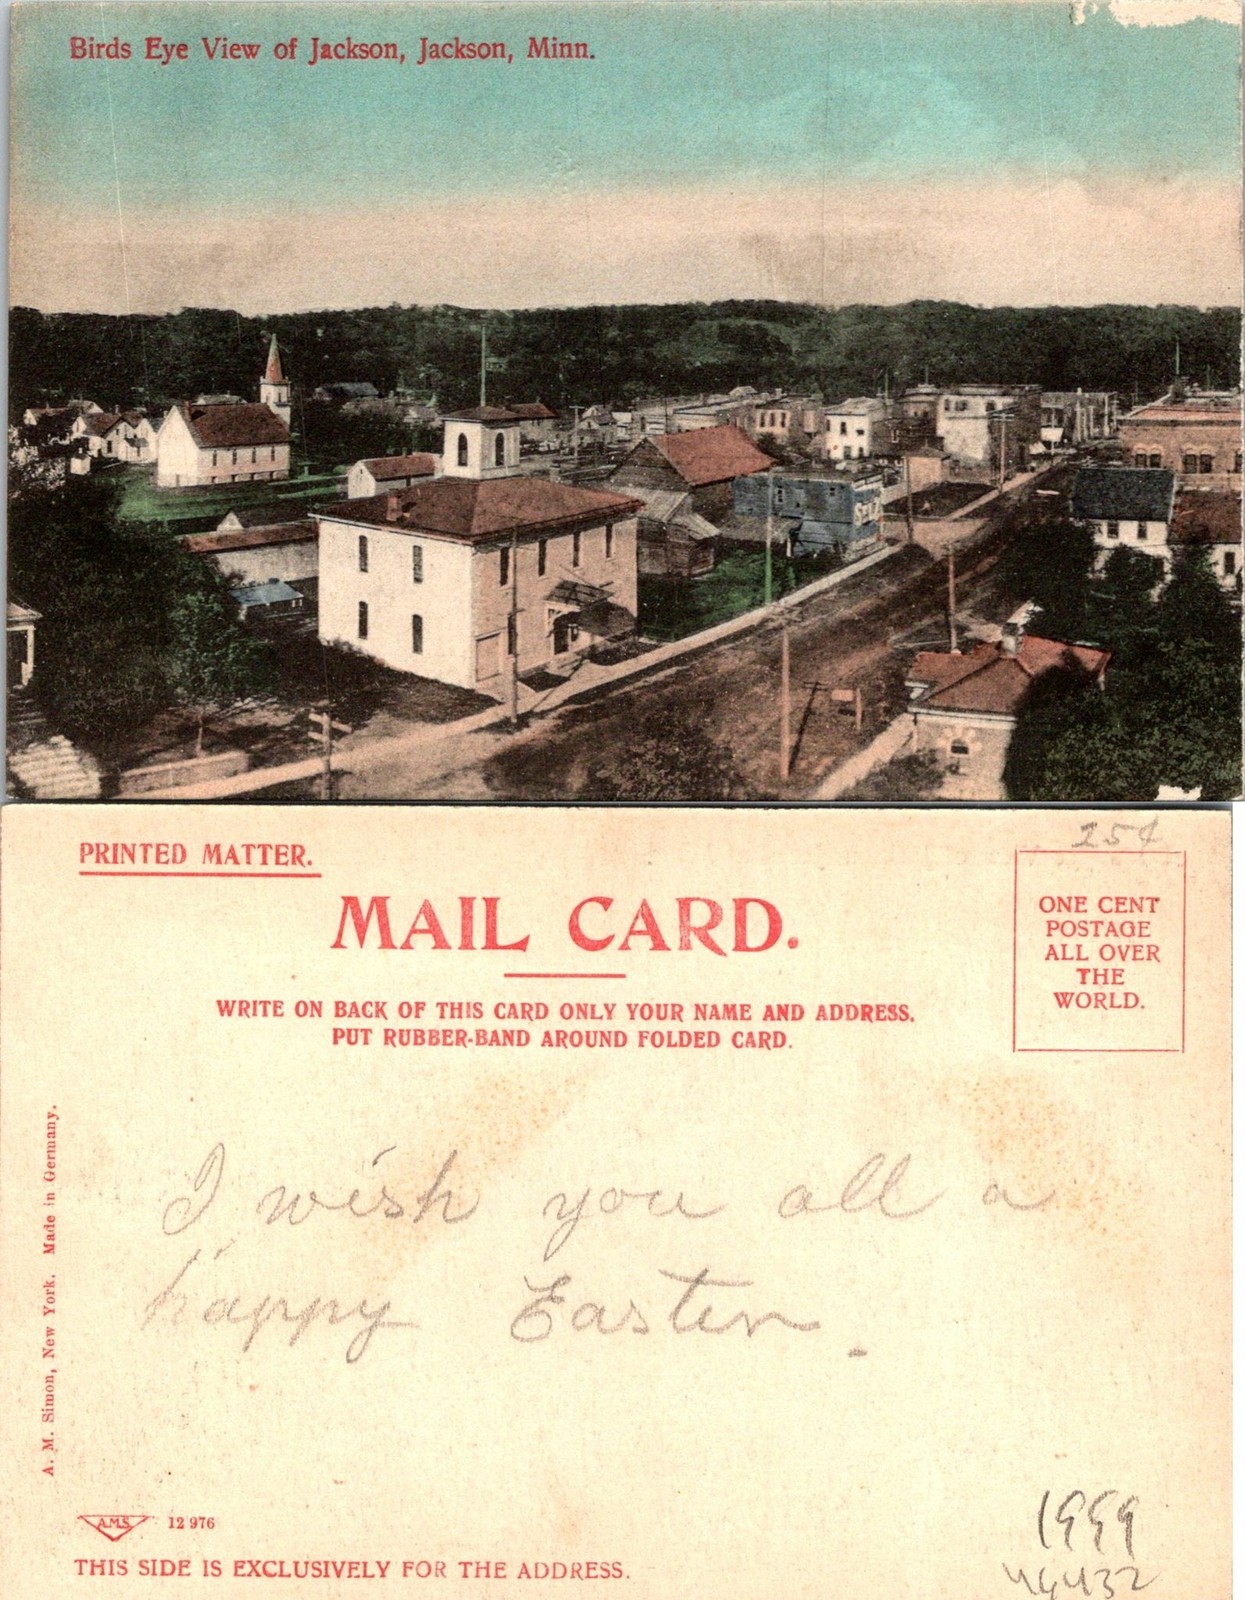 Birds Eye View of Jackson, Jackson, Minn.
PRINTED MATTER.
25¢
MAIL CARD.
ONE CENT
POSTAGE
ALL OVER
THE
WORLD.
WRITE ON BACK OF THIS CARD ONLY YOUR NAME AND ADDRESS.
PUT RUBBER-BAND AROUND FOLDED CARD.
I wish you all a
happy Easter.
A. M. Simon, New York. Made in Germany.
A.M.S. 12 976
1999
THIS SIDE IS EXCLUSIVELY FOR THE ADDRESS.